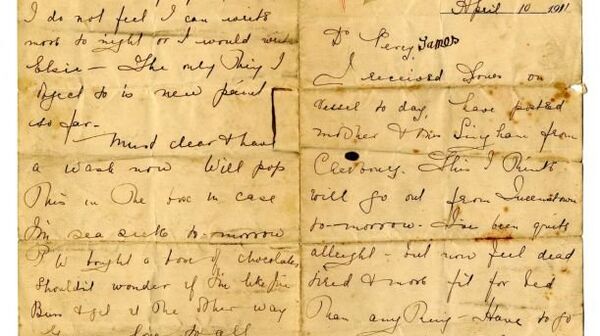 I do not feel I can write
more to night or I would write
Elsie - The only thing I
object to is new paint
so far -
Must clear & have
a wash now Will pop
this in the box in case
I'm sea sick to-morrow
bought a box of chocolates
Shouldn't wonder if I'm like
Buss & get it the other way
love to all
April 10 1911
Dr Percy James
I received yours on
vessel to day, have posted
mother & Miss Lingham from
Cherbourg. This I think
will go out from Queenstown
to-morrow. I've been quite
allright - but now feel dead
tired & more fit for bed
than anything - Have to go